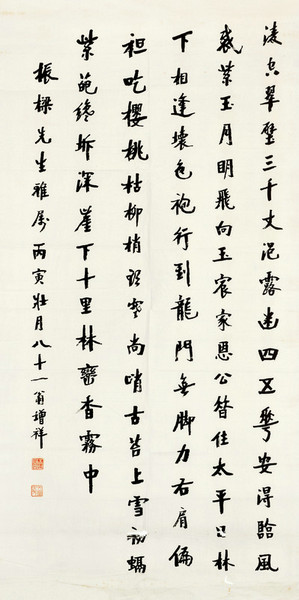 凌空翠壁三千丈浥露幽四五華安得臨風
裁紫玉月明飛向玉宸家恩公太平只林
下相逢壞色袍行到龍門無脚力右肩偏
袒吃櫻桃枯柳梢寒尚哨古苔上雪初融
紫葩纔坼深崖下十里林巒香霧中
振樑先生雅屬丙寅壯月八十一翁增祥